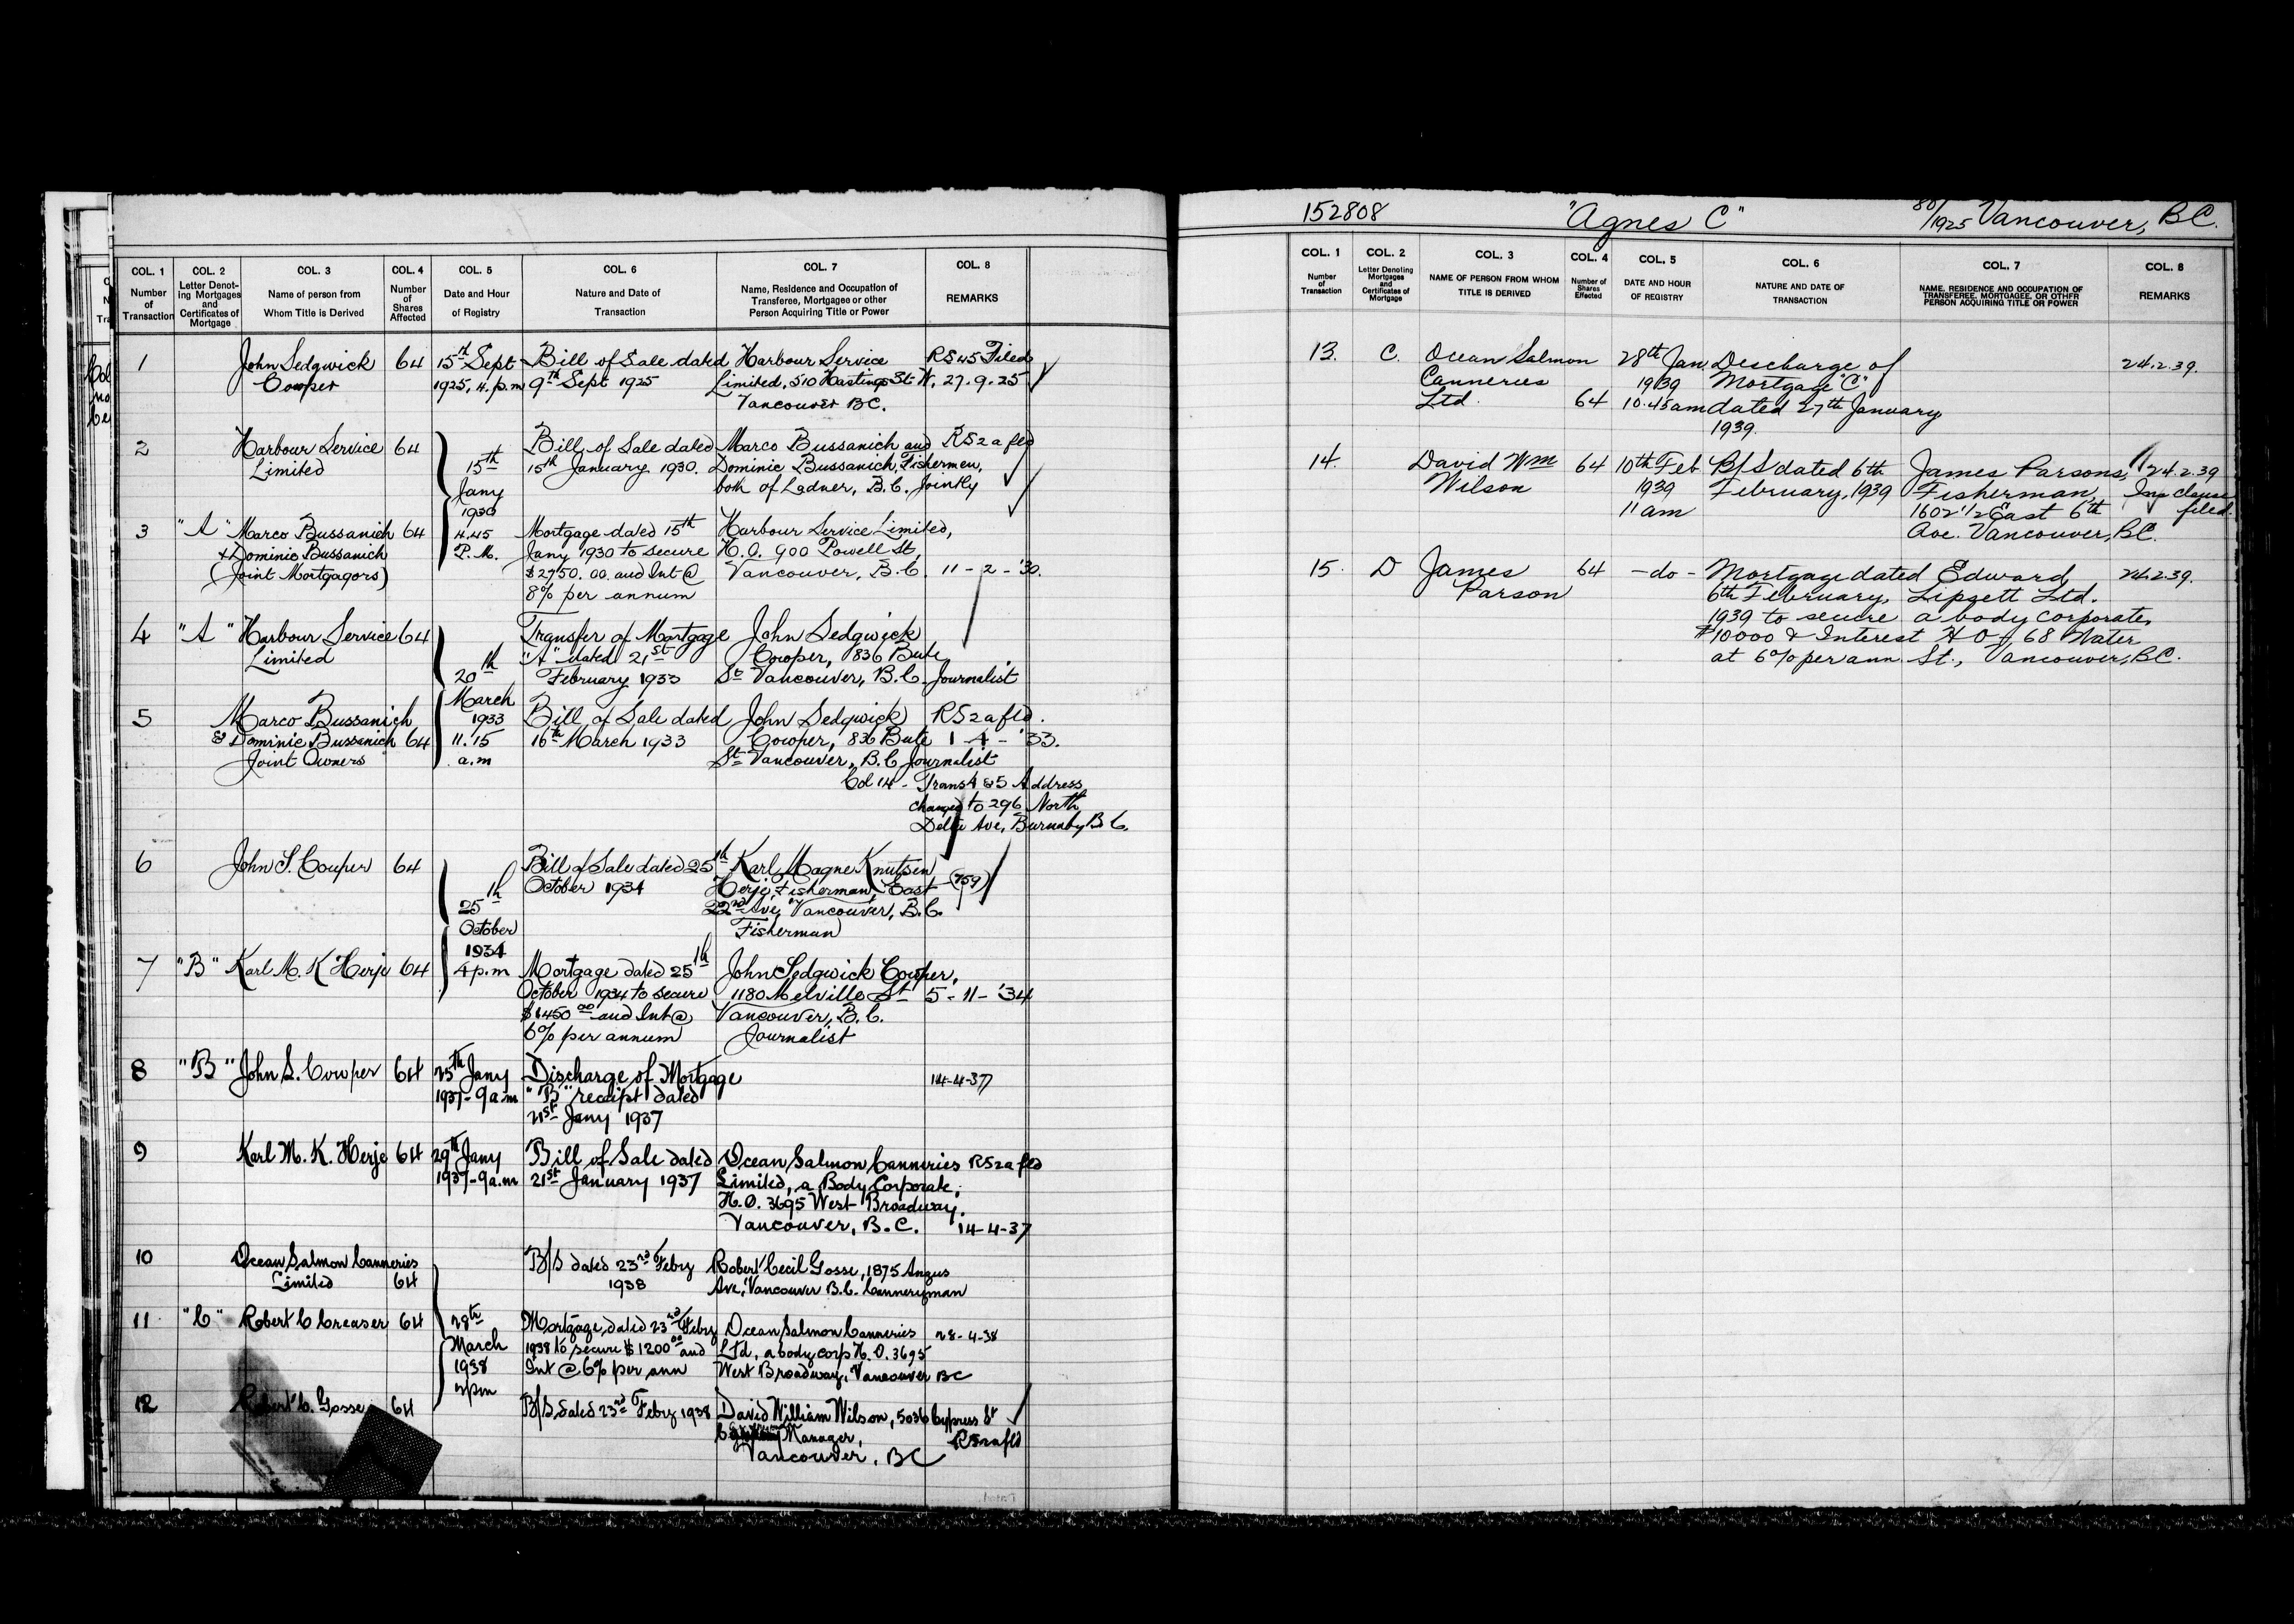 COL. 1 COL. 2 COL. 3 COL. 4 COL. 5 COL. 6 COL. 7 COL. 8
Number of Transaction
Letter Denoting Mortgages and Certificates of Mortgage
Name of person from Whom Title is Derived
Number of Shares Affected
Date and Hour of Registry
Nature and Date of Transaction
Name, Residence and Occupation of Transferee, Mortgagee or other Person Acquiring Title or Power
REMARKS
1 John Sedgwick 64 15th Sept Bill of Sale dated Harbour Service RS45 Filed
Cowper 1925, 4.p.m 9th Sept 1925 Limited, 510 Hastings St W, 27.9.25
Vancouver BC.
2 Harbour Service 64 Bill of Sale dated Marco Bussanich and RS2a fld
Limited 15th 15th January 1930. Dominic Bussanich, Fishermen,
Jany both of Ladner, B.C. Jointly
1930
3 "A" Marco Bussanich 64 4.45 Mortgage dated 15th Harbour Service Limited,
+ Dominic Bussanich P.M. Jany 1930 to secure H.O. 900 Powell St,
(Joint Mortgagors) $2750.00 and Int @ Vancouver, B.C. 11-2-'30.
8% per annum
4 "A" Harbour Service 64 Transfer of Mortgage John Sedgwick
Limited "A" dated 21st Cowper, 836 Bute
20th February 1933 St Vancouver, B.C. Journalist
March
5 Marco Bussanich 1933 Bill of Sale dated John Sedgwick RS2a fld.
& Dominic Bussanich 64 11.15 16th March 1933 Cowper, 836 Bute 1-4-'33.
Joint Owners a.m St Vancouver, B.C Journalist
Col 14 - Trans 4 & 5 Address
changed to 296 North
Delta Ave, Burnaby B.C.
6 John S. Cowper 64 Bill of Sale dated 25th Karl Magne Knutsen
October 1934 Herje, Fisherman, East (759)
25th 22nd Ave, Vancouver, B.C.
October Fisherman
1934
7 "B" Karl M. K Herje 64 4 p.m Mortgage dated 25th John Sedgwick Cowper,
October 1934 to secure 1180 Melville St 5-11-'34
$1450.00 and Int @ Vancouver, B.C.
6% per annum Journalist
8 "B" John S. Cowper 64 25th Jany Discharge of Mortgage 14-4-37
1937-9a.m "B" receipt dated
21st Jany 1937
9 Karl M. K. Herje 64 29th Jany Bill of Sale dated Ocean Salmon Canneries RS2a fld
1937-9a.m 21st January 1937 Limited, a Body Corporate,
H.O. 3695 West Broadway,
Vancouver, B.C. 14-4-37
10 Ocean Salmon Canneries B/S dated 23rd Febry Robert Cecil Gosse, 1875 Angus
Limited 64 1938 Ave, Vancouver B.C. Canneryman
11 "C" Robert C Creaser 64 28th Mortgage, dated 23rd Febry Ocean Salmon Canneries 28-4-38
March 1938 to secure $1200.00 and Ltd, a body corp H.O. 3695
1938 Int @ 6% per ann West Broadway, Vancouver BC
2pm
12 Robert C. Gosse 64 B/S dated 23rd Febry 1938 David William Wilson, 5036 Cypress St
Manager, RS2a fld
Vancouver, BC
152808 "Agnes C" 80/1925 Vancouver, BC.
COL. 1 COL. 2 COL. 3 COL. 4 COL. 5 COL. 6 COL. 7 COL. 8
Number of Transaction
Letter Denoting Mortgages and Certificates of Mortgage
NAME OF PERSON FROM WHOM TITLE IS DERIVED
Number of Shares Effected
DATE AND HOUR OF REGISTRY
NATURE AND DATE OF TRANSACTION
NAME, RESIDENCE AND OCCUPATION OF TRANSFEREE, MORTGAGEE, OR OTHER PERSON ACQUIRING TITLE OR POWER
REMARKS
13. C. Ocean Salmon 28th Jan. Descharge of 24.2.39.
Canneries 1939 Mortgage "C"
Ltd. 64 10.45am dated 27th January
1939.
14. David Wm 64 10th Feb B/S dated 6th James Parsons, 24.2.39
Wilson 1939 February, 1939 Fisherman, Inp clause
11 am 1602 1/2 East 6th filed.
Ave. Vancouver, BC.
15. D James 64 -do- Mortgage dated Edward 24.2.39.
Parson 6th February, Lipsett Ltd.
1939 to secure a body corporate,
$10000 & Interest H O of 68 Water
at 6% per ann. St., Vancouver, BC.